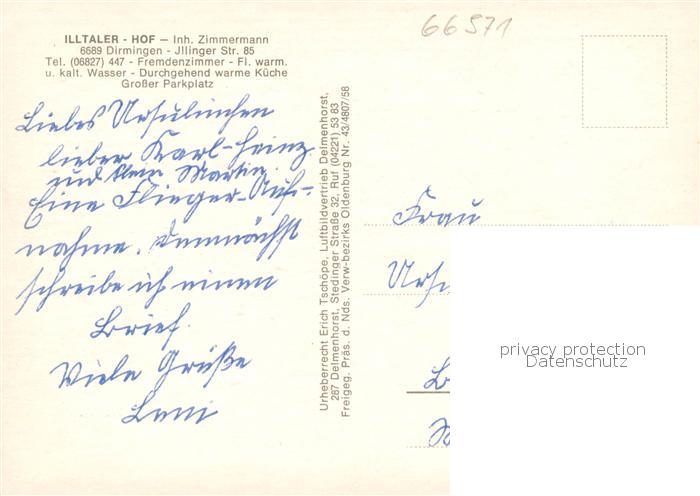 66571
ILLTALER - HOF — Inh. Zimmermann
6689 Dirmingen - Jllinger Str. 85
Tel. (06827) 447 - Fremdenzimmer - Fl. warm.
u. kalt. Wasser - Durchgehend warme Küche
Großer Parkplatz
Liebes Ursulinchen
lieber Karl-Heinz
und klein Martin
Eine Flieger-Auf-
nahme. Demnächst
schreibe ich einen
Brief.
Viele Grüße
Leni
Urheberrecht Erich Tschöpe, Luftbildvertrieb Delmenhorst,
287 Delmenhorst, Stedinger Straße 32, Ruf (04221) 53 83
Freigeg. Präs. d. Nds. Verw-bezirks Oldenburg Nr. 43/4807/58
Frau
Urs
privacy protection
Datenschutz